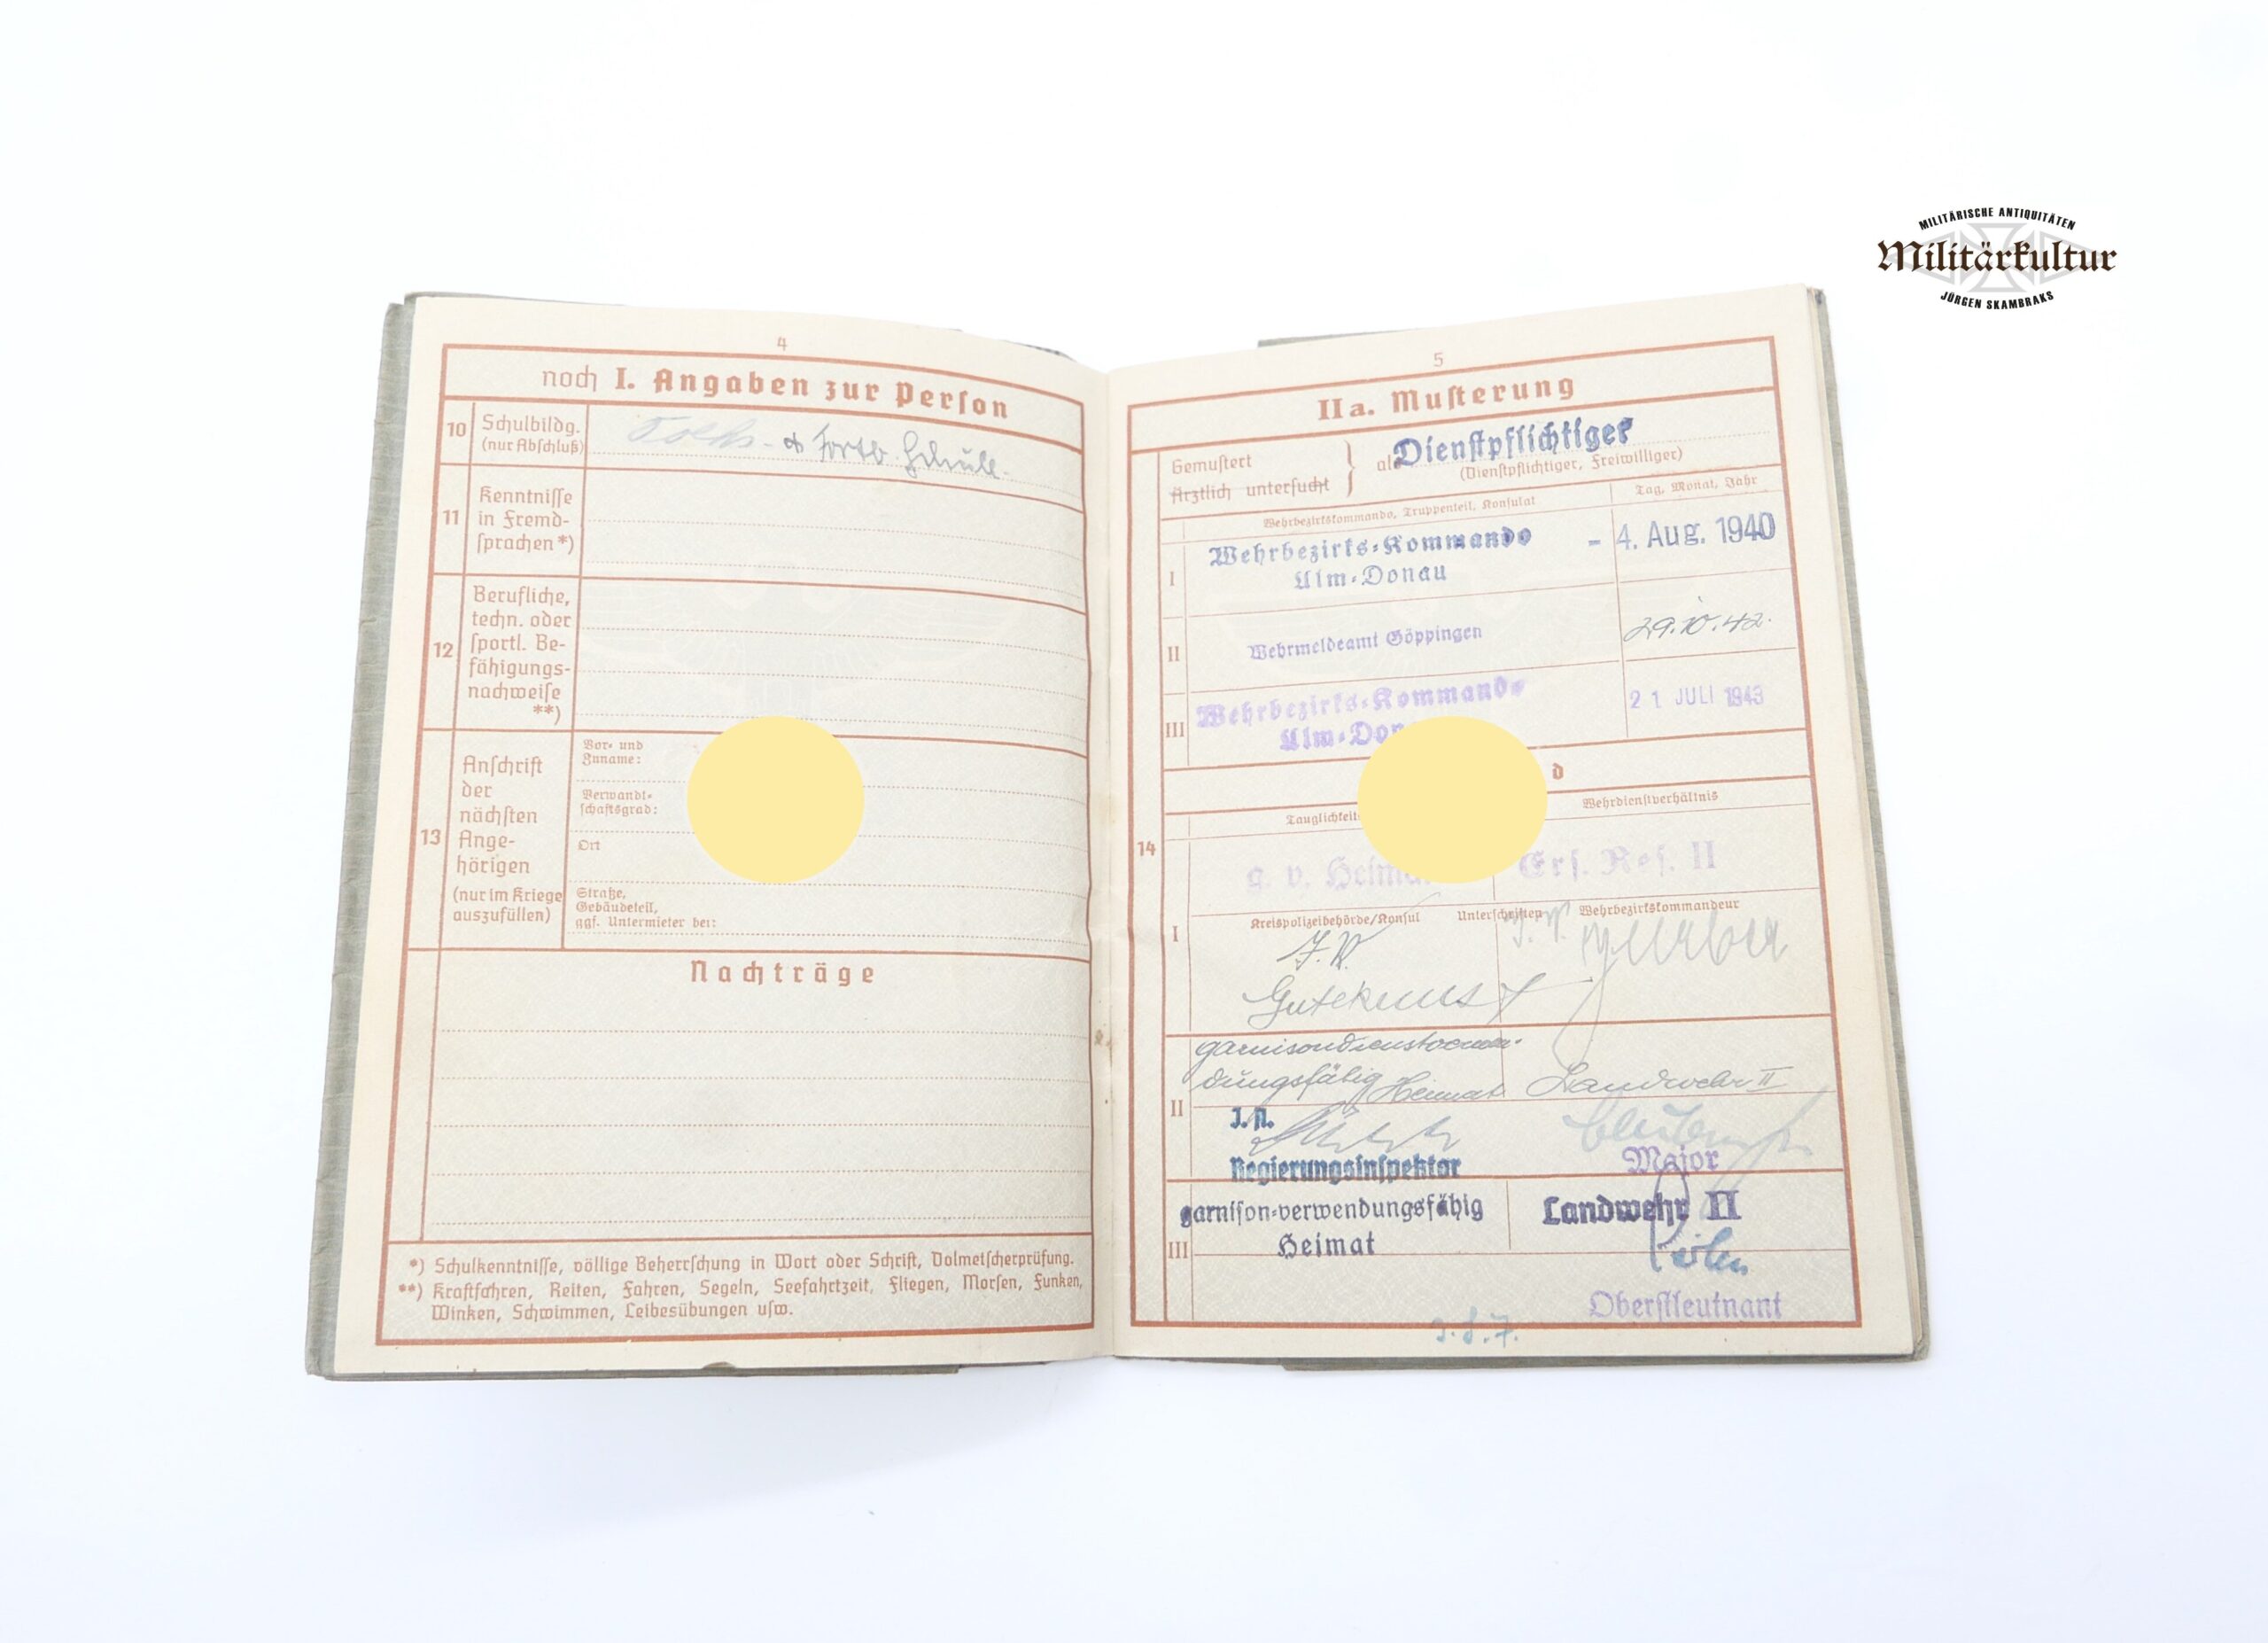 MILITÄRISCHE ANTIQUITÄTEN
Militärkultur
JÜRGEN SKAMBRAKS
4
noch I. Angaben zur Perſon
10 Schulbildg.
(nur Abſchluß)
Volks- & Fortb. Schule.
11 Kenntniſſe
in Fremd-
ſprachen *)
12 Berufliche,
techn. oder
ſportl. Be-
fähigungs-
nachweiſe
**)
13 Anſchrift
der
nächſten
Ange-
hörigen
(nur im Kriege
auszufüllen)
Vor- und
Zuname:
Verwandt-
ſchaftsgrad:
Ort
Straße,
Gebäudeteil,
ggf. Untermieter bei:
Nachträge
*) Schulkenntniſſe, völlige Beherrſchung in Wort oder Schrift, Dolmetſcherprüfung.
**) Kraftfahren, Reiten, Fahren, Segeln, Seefahrtzeit, Fliegen, Morſen, Funken,
Winken, Schwimmen, Leibesübungen uſw.
5
IIa. Muſterung
Gemuſtert
Ärztlich unterſucht
als Dienſtpflichtiger
(Dienſtpflichtiger, Freiwilliger)
Wehrbezirkskommando, Truppenteil, Konſulat
Tag, Monat, Jahr
I Wehrbezirks-Kommando - 4. Aug. 1940
Ulm-Donau
II Wehrmeldeamt Göppingen 29.10.42.
III Wehrbezirks-Kommando 21 JULI 1943
Ulm-Don
d
Tauglichkeit
Wehrdienſtverhältnis
14
g. v. Heima Erſ. Reſ. II
I Kreispolizeibehörde/Konſul Unterſchriften Wehrbezirkskommandeur
J. V.
Gutekunst
II garnisondienstverwen-
dungsfähig Heimat. Landwehr II
J. A.
Regierungsinſpektor
Major
III garniſon-verwendungsfähig Landwehr II
Heimat
Oberſtleutnant